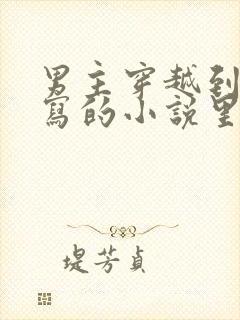 男主穿越到
寫的小說里
堤芳貞